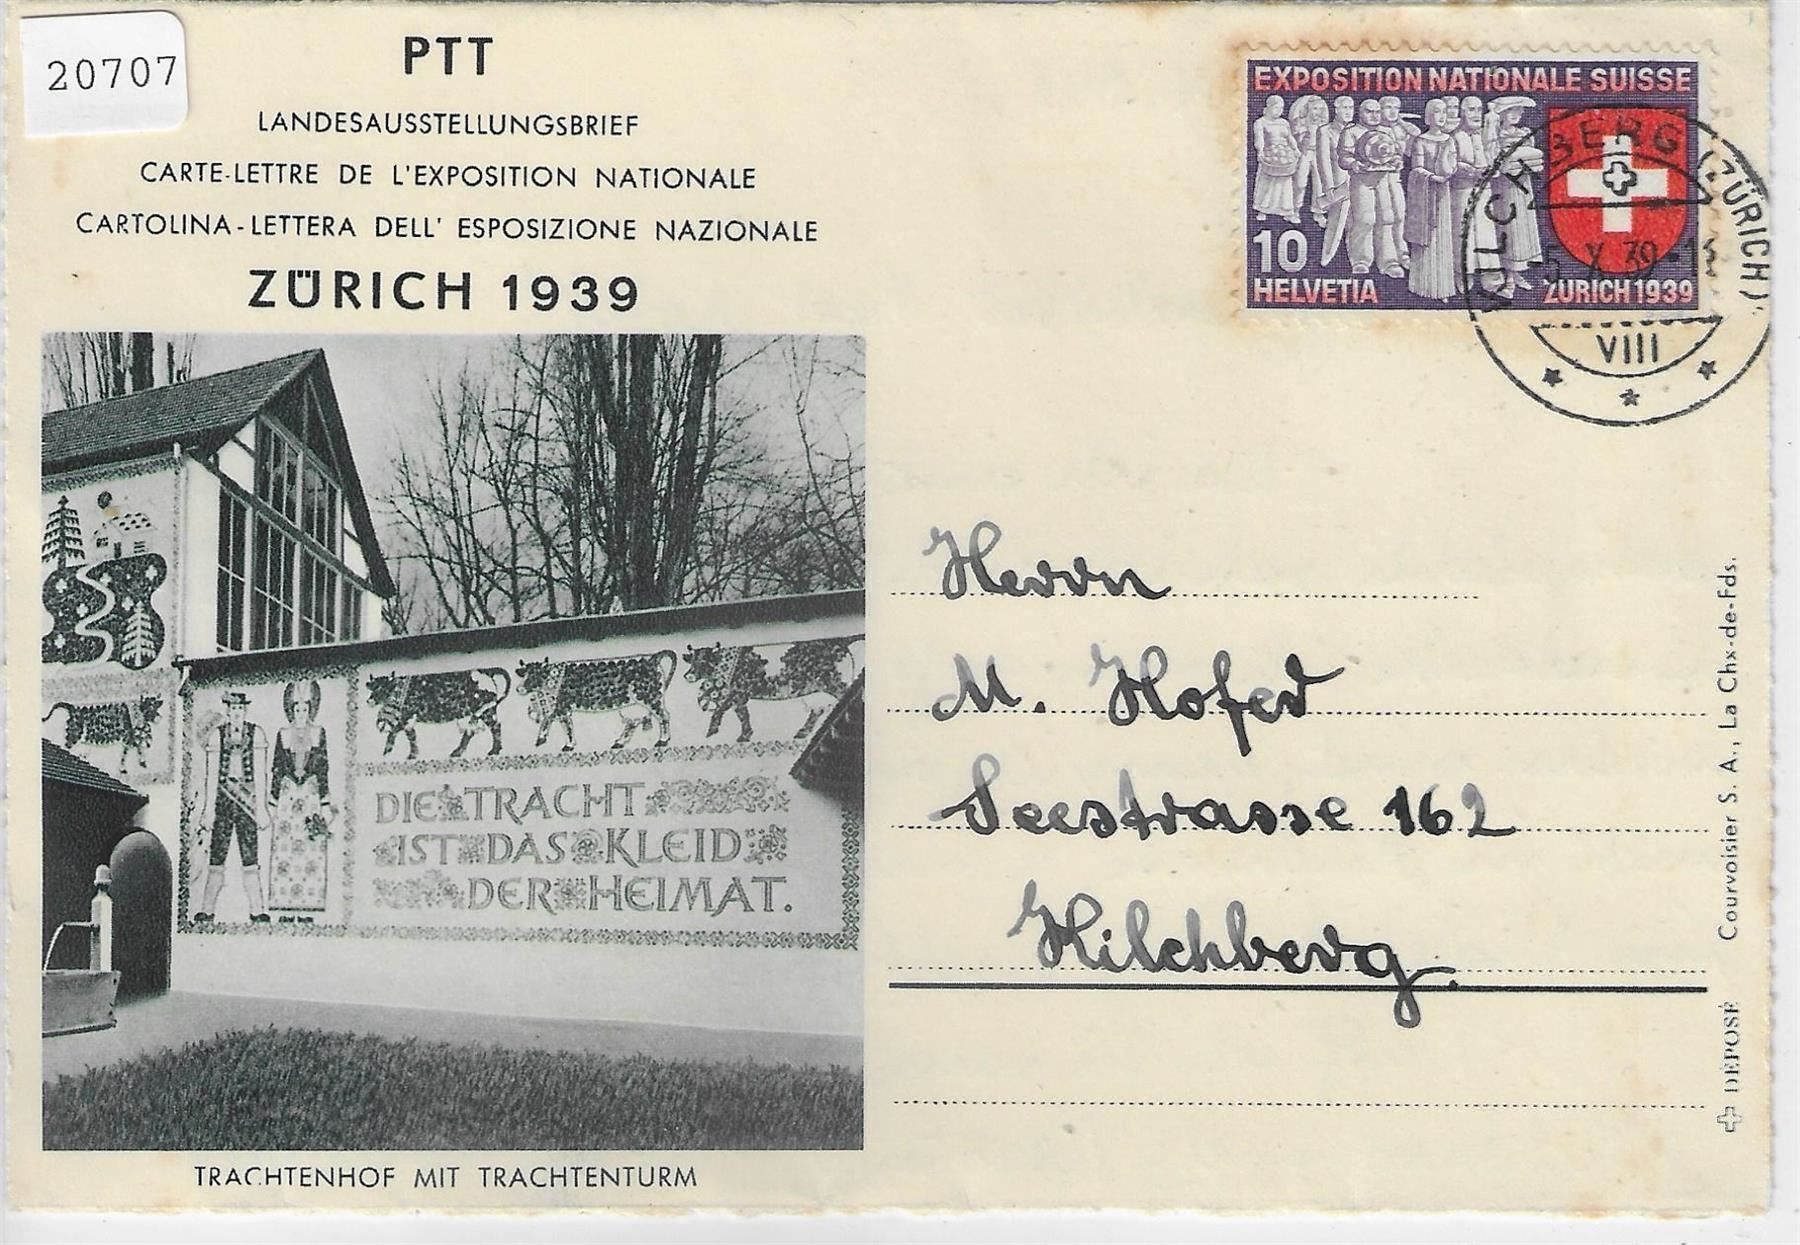 20707
PTT
LANDESAUSSTELLUNGSBRIEF
CARTE-LETTRE DE L'EXPOSITION NATIONALE
CARTOLINA-LETTERA DELL' ESPOSIZIONE NAZIONALE
ZÜRICH 1939
EXPOSITION NATIONALE SUISSE
10
HELVETIA
ZURICH 1939
KILCHBERG (ZÜRICH)
-5.X.39-
VIII
DIE TRACHT
IST DAS KLEID
DER HEIMAT.
TRACHTENHOF MIT TRACHTENTURM
Herrn
M. Hofer
Seestrasse 162
Kilchberg.
Courvoisier S. A., La Chx-de-Fds.
DÉPOSÉ